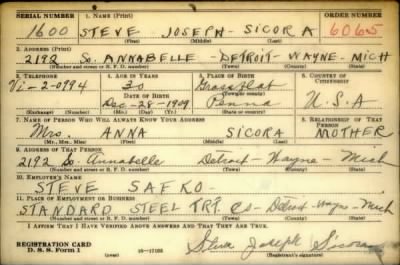 SERIAL NUMBER 1. NAME (Print) ORDER NUMBER
1600 STEVE JOSEPH - SICORA 6065
(First) (Middle) (Last)
2. ADDRESS (Print)
2192 So. ANNABELLE - DETROIT - WAYNE - MICH
(Number and street or R. F. D. number) (Town) (County) (State)
3. TELEPHONE 4. AGE IN YEARS 5. PLACE OF BIRTH 6. COUNTRY OF CITIZENSHIP
Vi-2-0994 30 Grassflat
DATE OF BIRTH (Town or county)
Dec-28-1909 Penna U.S.A
(Exchange) (Number) (Mo.) (Day) (Yr.) (State or country)
7. NAME OF PERSON WHO WILL ALWAYS KNOW YOUR ADDRESS 8. RELATIONSHIP OF THAT PERSON
Mrs. ANNA SICORA MOTHER
(Mr., Mrs., Miss) (First) (Middle) (Last)
9. ADDRESS OF THAT PERSON
2192 So. Annabelle Detroit - Wayne - Mich
(Number and street or R. F. D. number) (Town) (County) (State)
10. EMPLOYER'S NAME
STEVE SAFKO -
11. PLACE OF EMPLOYMENT OR BUSINESS
STANDARD STEEL TRT. Co - Detroit - Wayne - Mich
(Number and street or R. F. D. number) (Town) (County) (State)
I AFFIRM THAT I HAVE VERIFIED ABOVE ANSWERS AND THAT THEY ARE TRUE.
REGISTRATION CARD
D. S. S. Form 1 (over) Steve Joseph Sicora
(Registrant's signature)